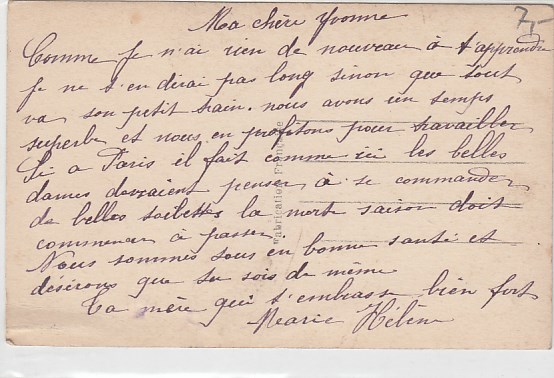 Ma chère Yvonne
7,-
Comme je n'ai rien de nouveau à t'apprendre
je ne t'en dirai pas long sinon que tout
va son petit train. nous avons un temps
superbe et nous en profitons pour travailler
Si a Paris il fait comme ici les belles
dames devraient penser à se commander
de belles toilettes la morte saison doit
commencer à passer.
Nous sommes tous en bonne santé et
désirons que tu sois de même
Ta mère qui t'embrasse bien fort
Marie Hélène
Fabrication Française